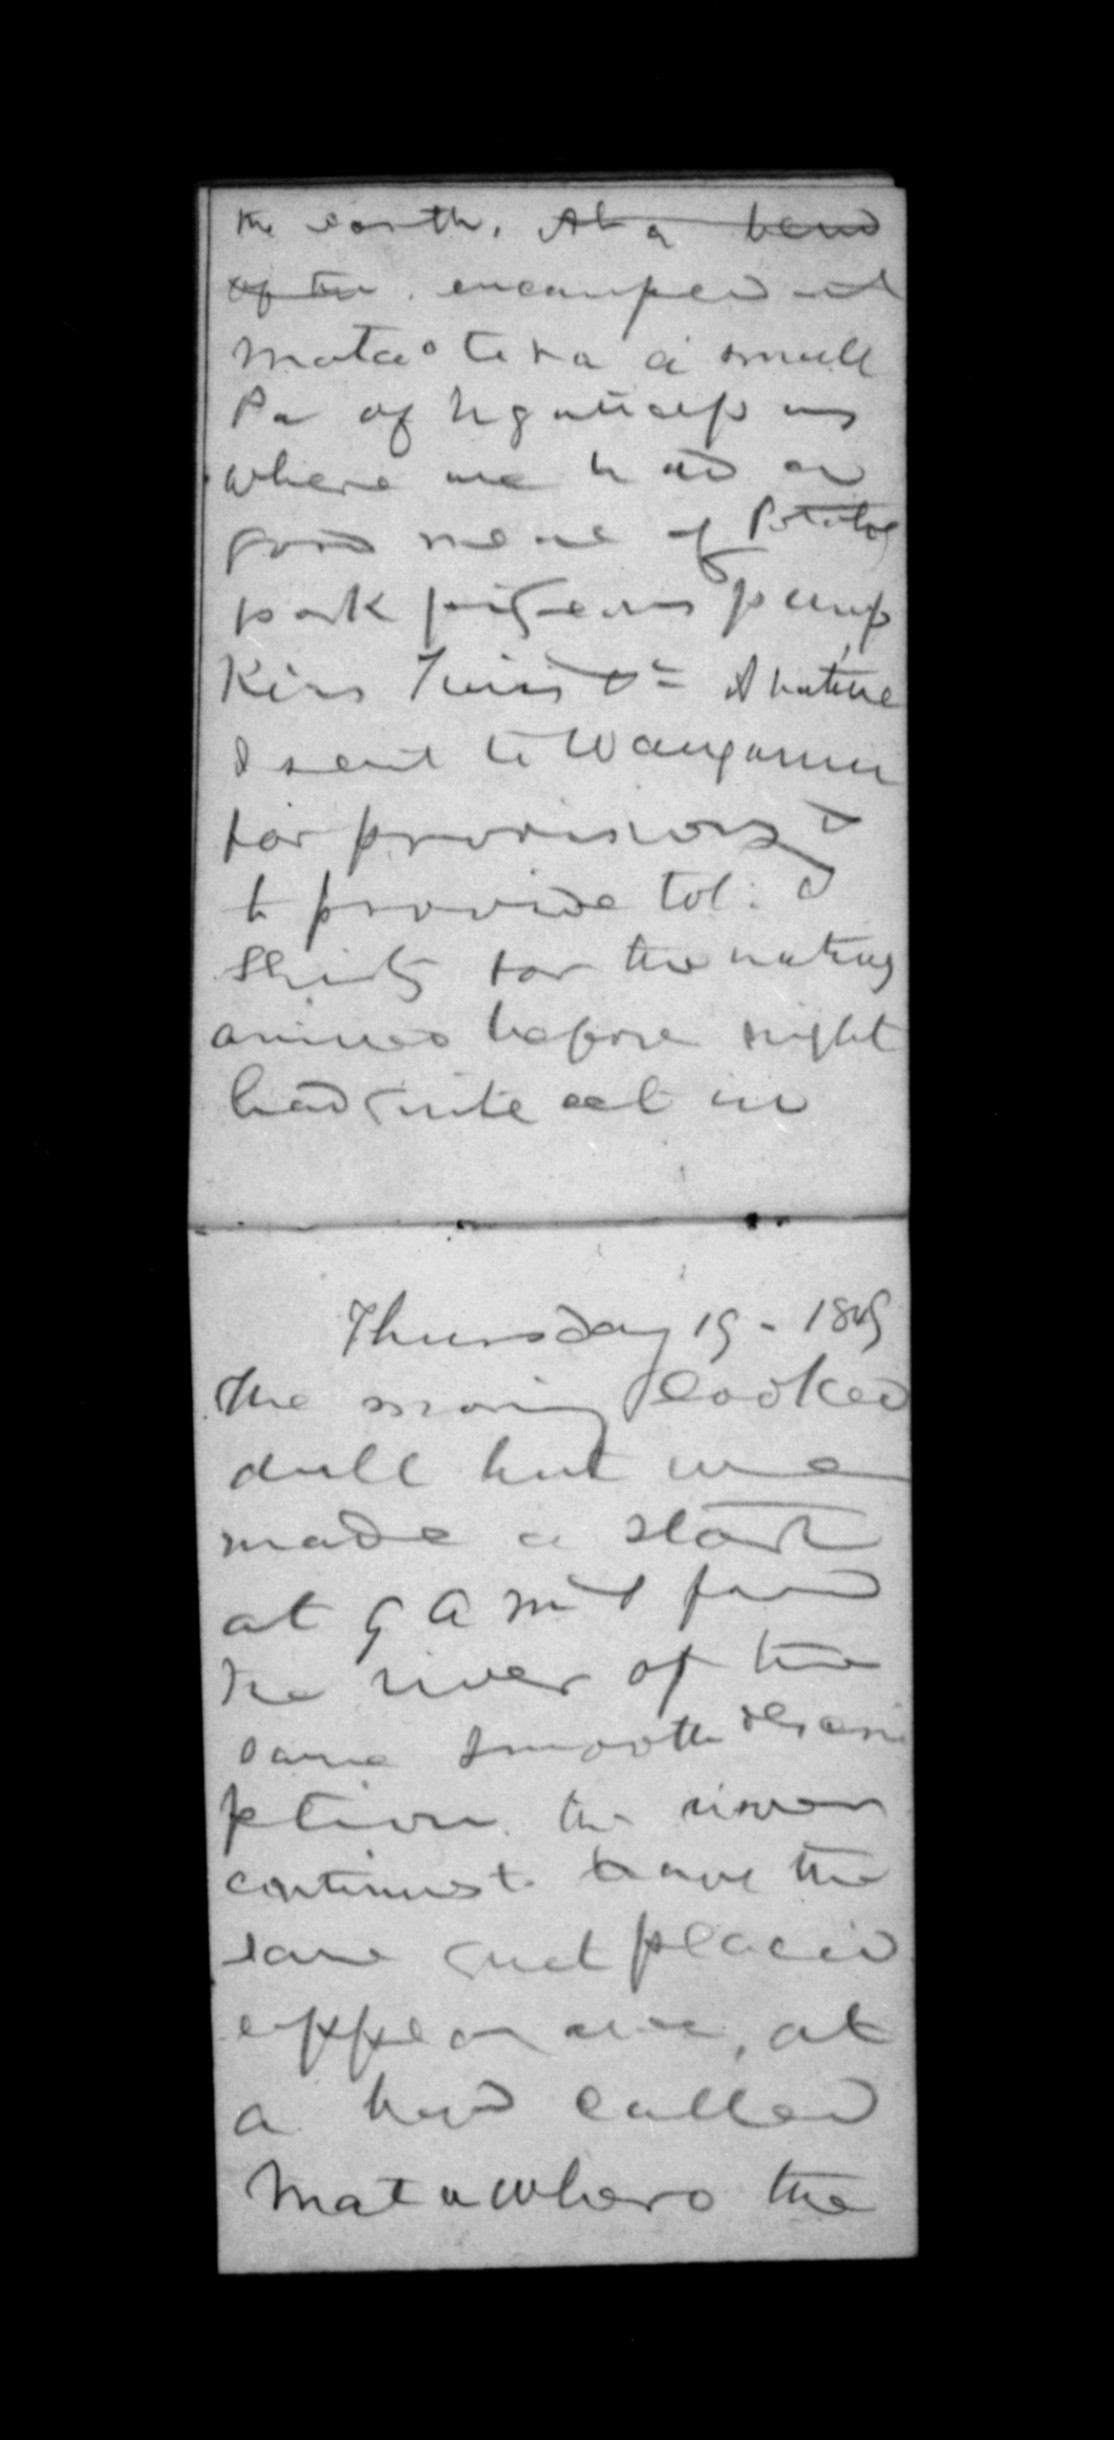 the earth. At a bend
of the. encamped at
Mataoteka a small
Pa of
where we had a
good meal of Potatoes
pork pigeons pump
kins &c A native
I sent to Wanganui
for provisions &
to provide tob: &
Shirts for the natives
arrived before night
had quite set in
Thursday 19 - 1849
The morning looked
dull but we
made a start
at 9 A M & found
the river of the
same smooth descri
ption. the river
continues to have the
same quiet placid
appearance, at
a bend called
Matawhero the